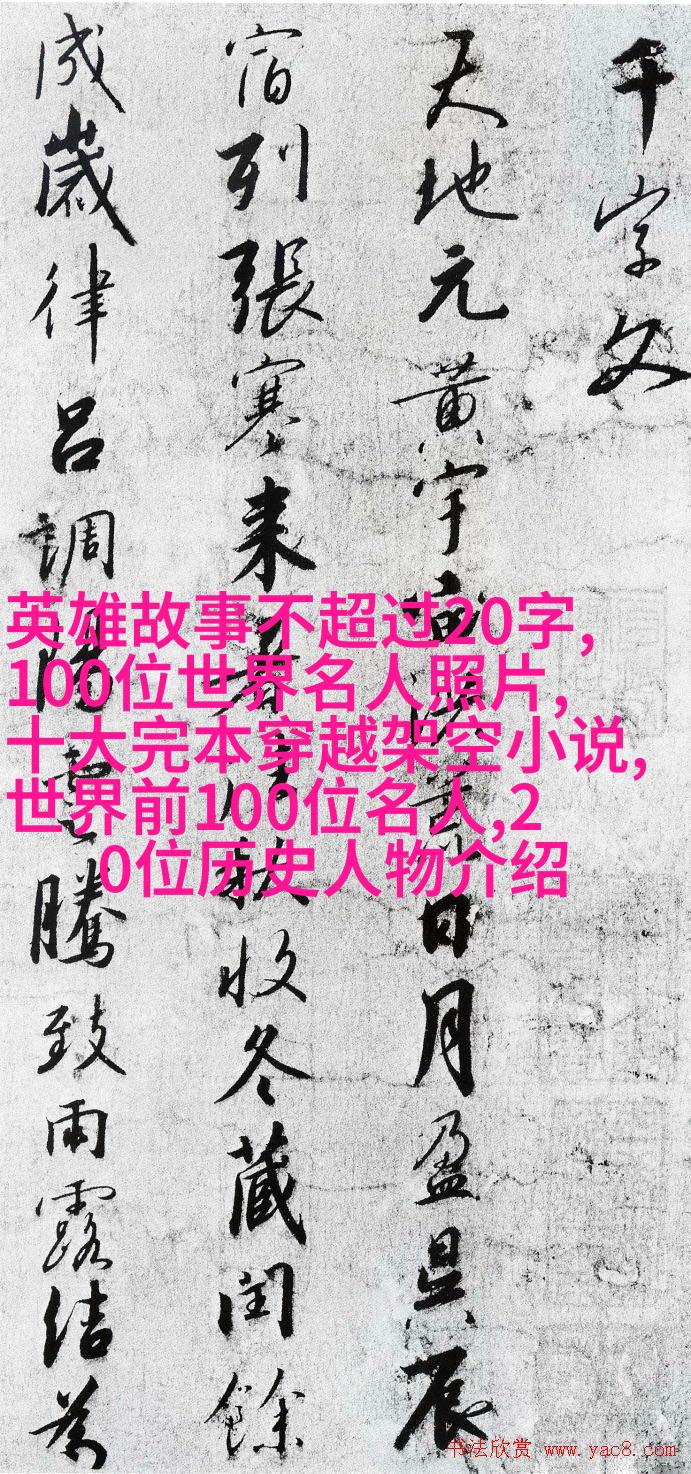 千字文
天地元黄宇宙洪荒日月盈昃辰
宿列張寒来暑往秋收冬蔵閏餘
成歲律吕調陽雲騰致雨露結為
英雄故事不超过20字,
100位世界名人照片,
十大完本穿越架空小说,
世界前100位名人,2
0位历史人物介绍
书法欣赏 www.yac8.com